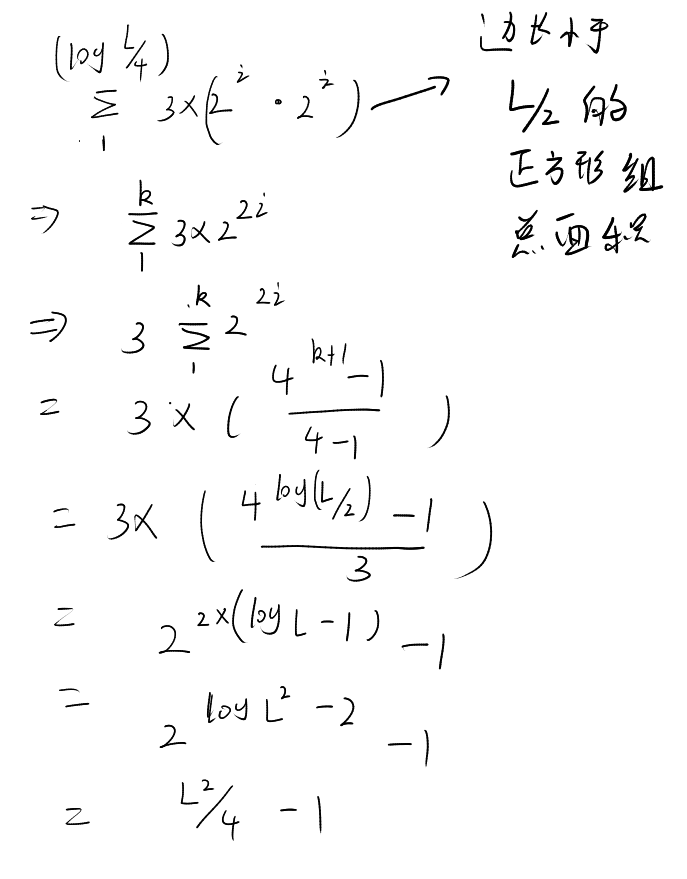 (log L/4)
Σ 3×(2^i · 2^i) →
1
边长小于
L/2 的
正方形组
总面积
⇒ k
Σ 3×2^{2i}
1
⇒ 3 k
Σ 2^{2i}
1
= 3 × ( (4^{k+1} - 1) / (4-1) )
= 3× ( (4^{log(L/2)} - 1) / 3 )
= 2^{2×(log L - 1)} - 1
= 2^{log L^2 - 2} - 1
= L^2/4 - 1